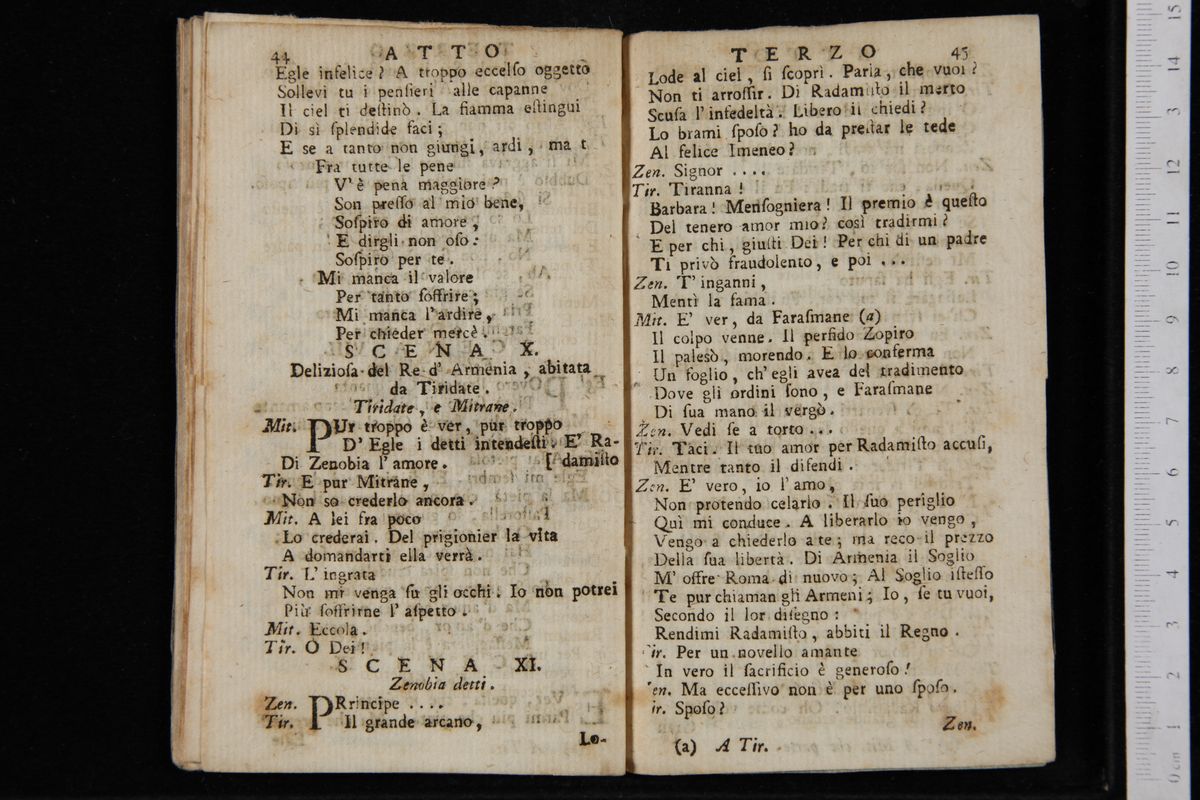 44 ATTO
Egle infelice? A troppo eccelſo oggetto
Sollevi tu i penſieri alle capanne
Il ciel ti deſtinò. La fiamma eſtingui
Di sì ſplendide faci;
E se a tanto non giungi, ardi, ma t
Fra tutte le pene
V'è pena maggiore?
Son preſſo al mio bene,
Soſpiro di amore,
E dirgli non oſo:
Soſpiro per te.
Mi manca il valore
Per tanto ſoffrire;
Mi manca l'ardire,
Per chieder mercè.
SCENA X.
Delizioſa del Re d' Armenia, abitata
da Tiridate.
Tiridate, e Mitrane.
Mit. PUr troppo è ver, pur troppo
D' Egle i detti intendeſti. E' Ra-
Di Zenobia l' amore. [damiſto
Tir. E pur Mitrane,
Non so crederlo ancora.
Mit. A lei fra poco
Lo crederai. Del prigionier la vita
A domandarti ella verrà.
Tir. L' ingrata
Non mi venga ſu gli occhi. Io non potrei
Più ſoffrirne l' aſpetto.
Mit. Eccola.
Tir. O Dei!
SCENA XI.
Zenobia detti.
Zen. PRrincipe ....
Tir. Il grande arcano,
Lo-
TERZO 45
Lode al ciel, ſi ſcoprì. Parla, che vuoi?
Non ti arroſſir. Di Radamiſto il merto
Scuſa l' infedeltà. Libero il chiedi?
Lo brami ſpoſo? ho da preſtar le tede
Al felice Imeneo?
Zen. Signor ....
Tir. Tiranna!
Barbara! Menſogniera! Il premio è queſto
Del tenero amor mio? così tradirmi?
E per chi, giuſti Dei! Per chi di un padre
Ti privò fraudolento, e poi ...
Zen. T' inganni,
Mentì la fama.
Mit. E' ver, da Faraſmane (a)
Il colpo venne. Il perfido Zopiro
Il palesò, morendo. E lo conferma
Un foglio, ch' egli avea del tradimento
Dove gli ordini ſono, e Faraſmane
Di ſua mano il vergò.
Zen. Vedi ſe a torto ...
Tir. Taci. Il tuo amor per Radamiſto accuſi,
Mentre tanto il difendi.
Zen. E' vero, io l' amo,
Non protendo celarlo. Il ſuo periglio
Quì mi conduce. A liberarlo io vengo,
Vengo a chiederlo a te; ma reco il prezzo
Della ſua libertà. Di Armenia il Soglio
M' offre Roma di nuovo; Al Soglio iſteſſo
Te pur chiaman gli Armeni; Io, ſe tu vuoi,
Secondo il lor diſegno:
Rendimi Radamiſto, abbiti il Regno.
ir. Per un novello amante
In vero il ſacrificio è generoſo!
en. Ma ecceſſivo non è per uno ſpoſo.
ir. Spoſo?
Zen.
(a) A Tir.